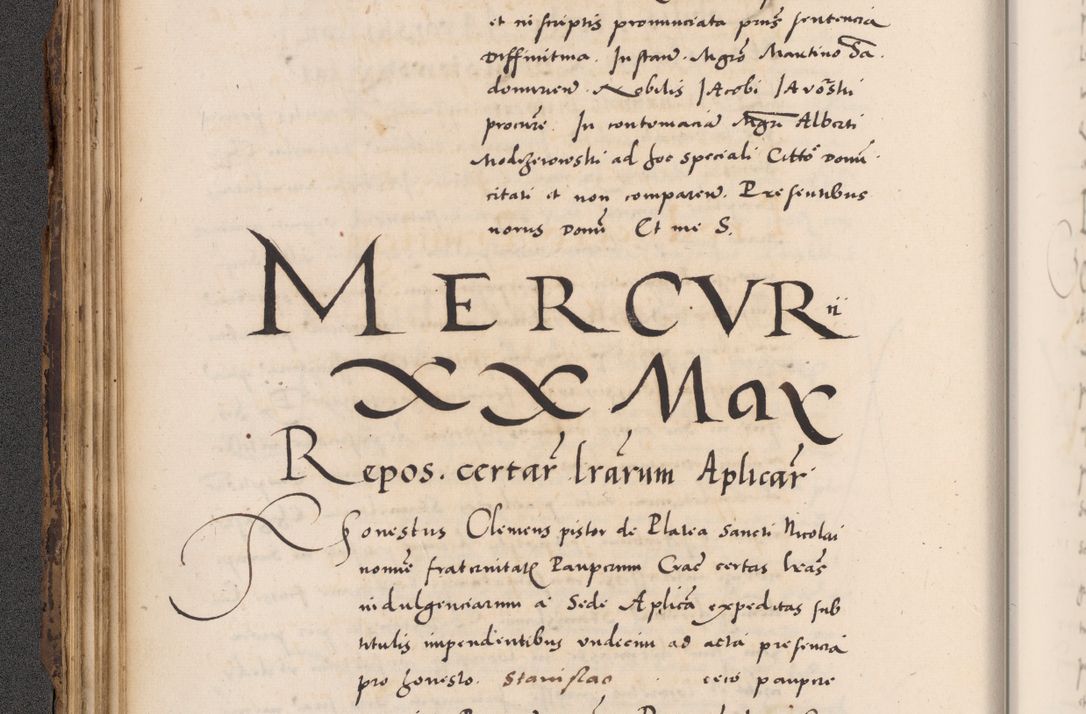 et in scriptis pronunciata prius sententia
Diffinitiva. In stan. Mgro Martino Sa.
domirien. Nobilis Jacobi Javorski
procure. In contumacia Mgri Alberti
Modrzewowski ad hoc speciali Citto Domi
citati et non comparen. Presentibus
norus Domi Et me S.
MERCVRii
XX Max
Repos. certar lrarum Aplicar
Honestus Clemens pistor de Platea Sancti Nicolai
nomine fraternitatis Pauperum Crac certas lras
indulgenciarum a Sede Aplica expeditas sub
titulis impendentibus undecim ad acta presencia
pro honesto. Stanislao . ceco paupere